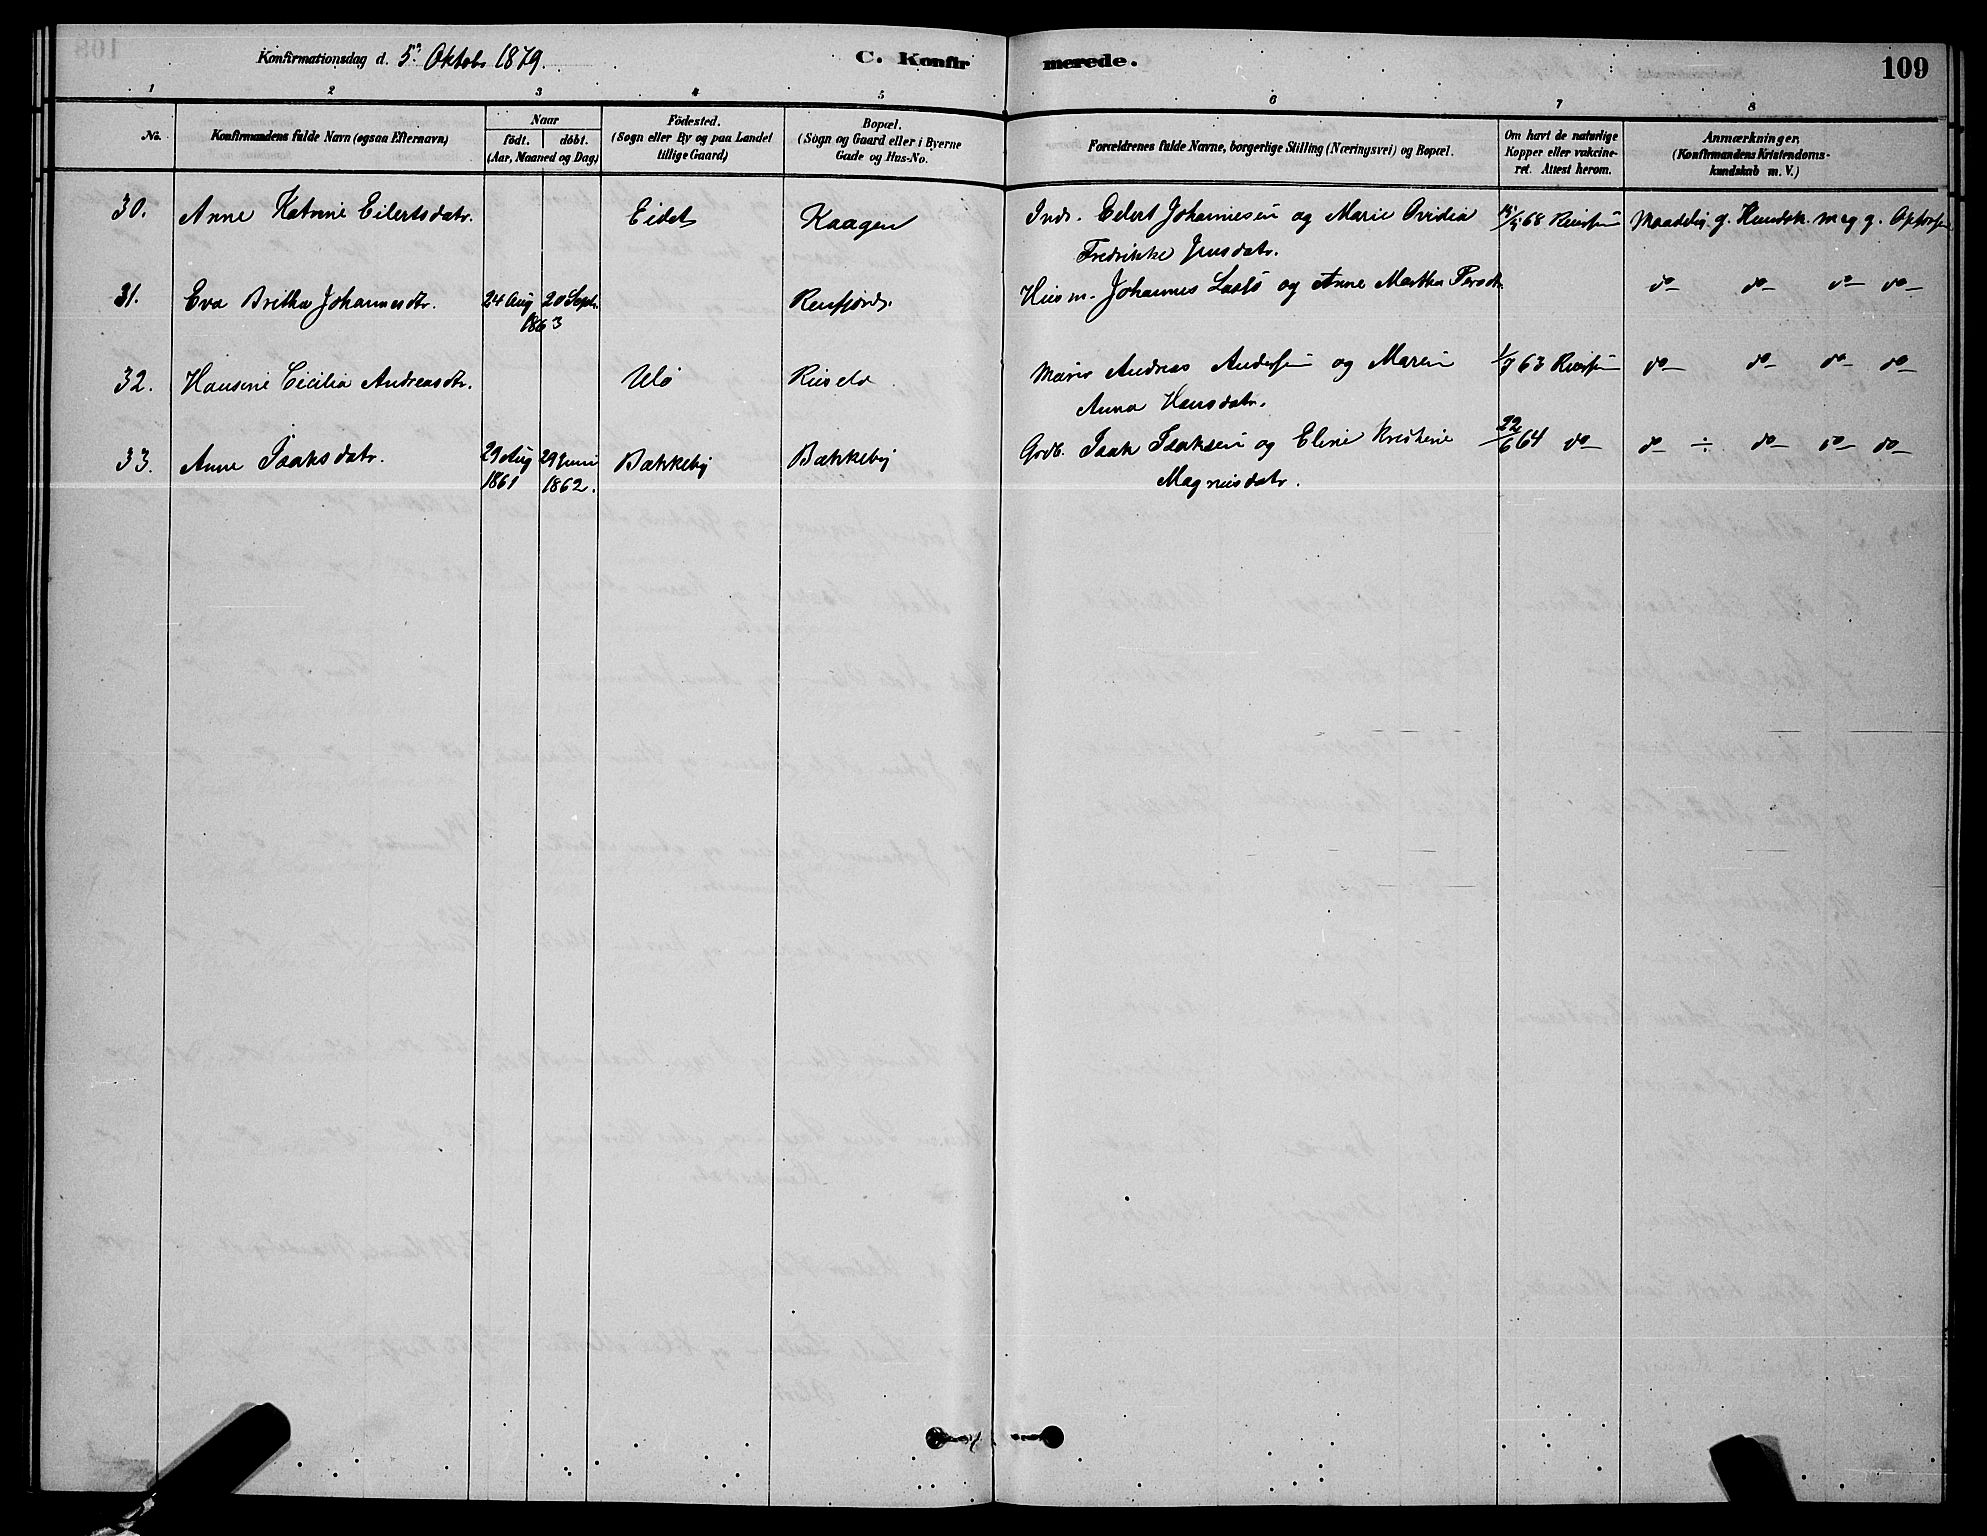 Konfirmationsdag d. 5te Oktob. 1879.
C. Konfirmerede.
109
1 2 3 4 5 6 7 8
No.
Konfirmandens fulde Navn (ogsaa Efternavn)
Naar
födt. döbt.
(Aar, Maaned og Dag)
Födested.
(Sogn eller By og paa Landet
tillige Gaard)
Bopæl.
(Sogn og Gaard eller i Byerne
Gade og Hus-No.
Forældrenes fulde Navne, borgerlige Stilling (Næringsvei) og Bopæl.
Om havt de naturlige
Kopper eller vakcine-
ret. Attest herom.
Anmærkninger,
(Konfirmandens Kristendoms-
kundskab m. V.)
30. Anne Katrine Eilertsdatr. Eidet Kaagen Inds. Eilert Johannesen og Marie Ovidia 68 Maadelig g.
Fredrikke Jensdatr.
31. Eva Britha Johannesdtr. 24 Aug 20 Septr. Husm. Johannes og Anne Martha Persdtr do do do do
1863
32. Hansine Cecilia Andreasdtr. Ulö Andreas Andersen og Maren 63 do do do do
Anna Hansdatr.
33. Anne Isaksdatr. 29 Aug 29 Juni Bakkeby Bakkeby Grdb. Isak Isaksen og Eline Kristine 22/6 64 do do ÷ do do do
1861 1862. Magnusdatr.